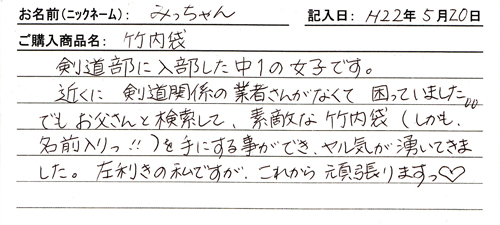 お名前(ニックネーム): みっちゃん 記入日: H22年 5月20日
ご購入商品名: 竹内袋
剣道部に入部した中1の女子です。
近くに 剣道関係の業者さんがなくて 困っていました。。
でもお父さんと検索して、素敵な竹内袋(しかも、
名前入りっ!!)を手にする事ができ、ヤル気が湧いてきま
した。左利きの私ですが、これから頑張りますっ♡